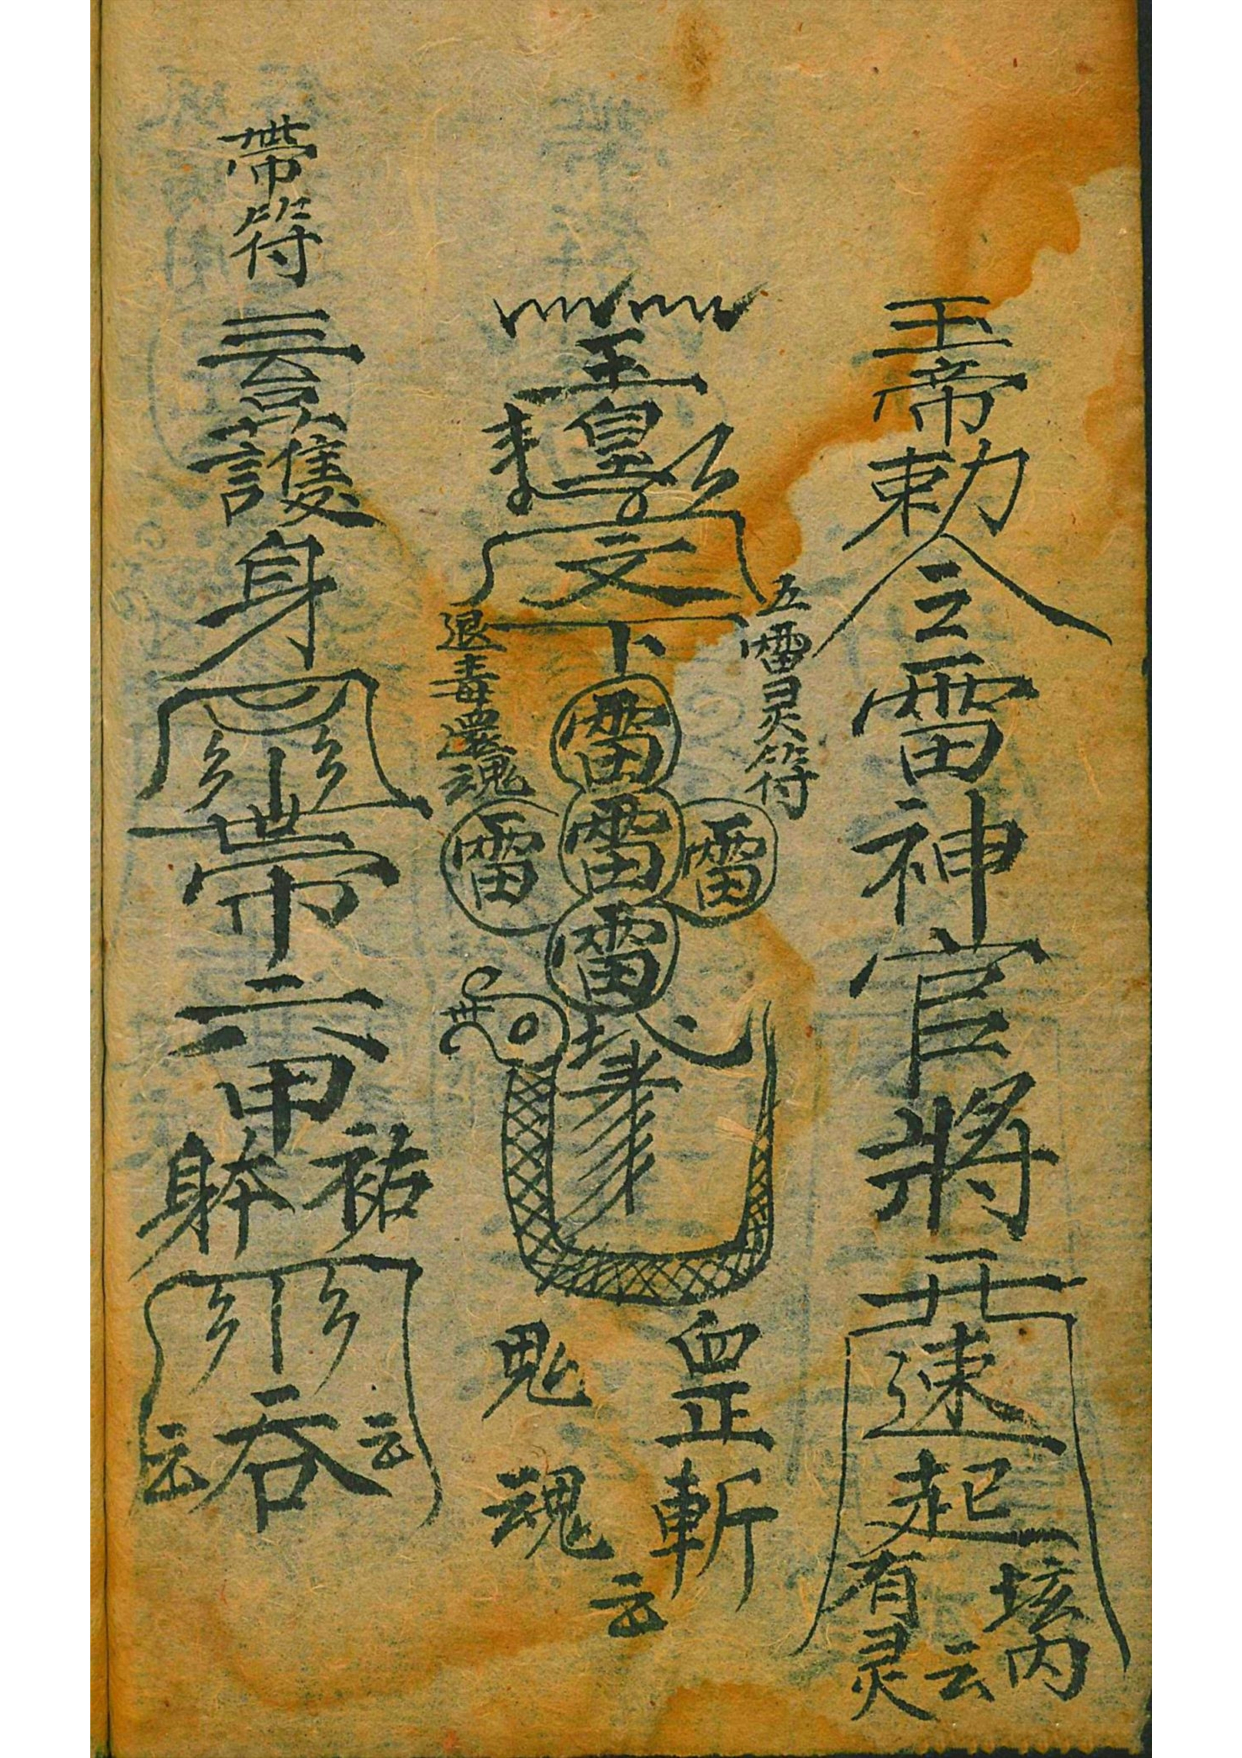 玉帝勅令雷神官將
速起
垓内
有灵
云
五雷灵符
玉皇
文
雷
雷 雷 雷
雷
退毒還魂
斬
鬼
魂
云
帶符
護身
帶六甲
祐
躰
吞
云 云